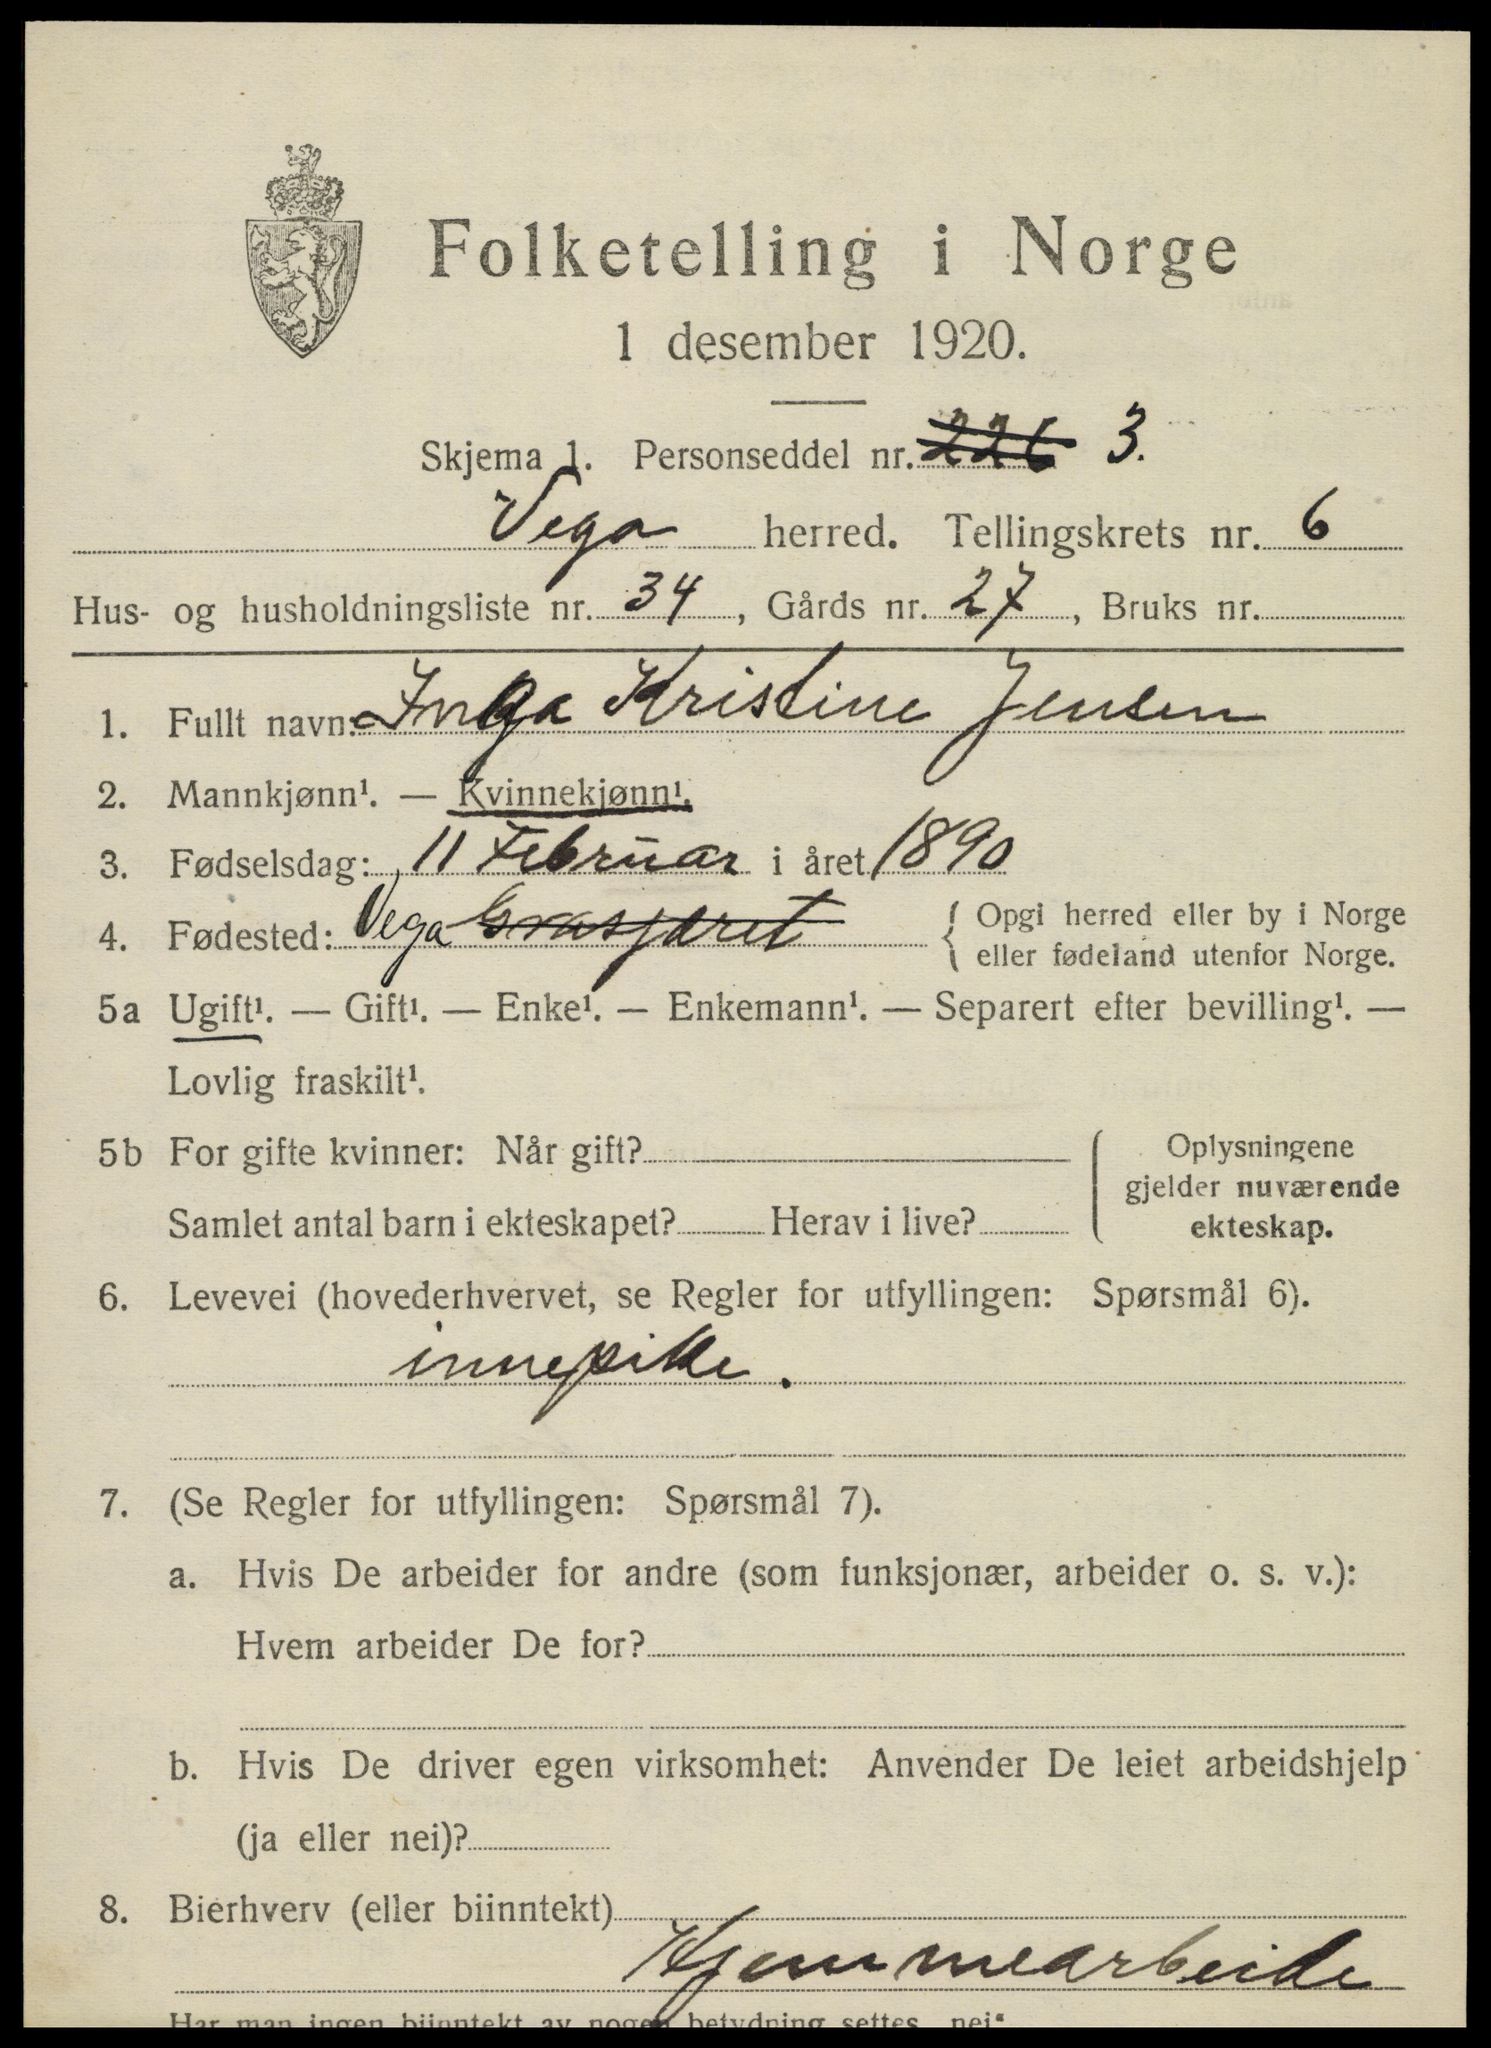 Folketelling i Norge
1 desember 1920.
Skjema 1. Personseddel nr. 226 3.
Vega herred. Tellingskrets nr. 6
Hus- og husholdningsliste nr. 34, Gårds nr. 27, Bruks nr.
1. Fullt navn: Inga Kristine Jensen
2. Mannkjønn¹. — Kvinnekjønn¹.
3. Fødselsdag: 11 Februar i året 1890
4. Fødested: Vega { Opgi herred eller by i Norge
eller fødeland utenfor Norge.
5a Ugift¹. — Gift¹. — Enke¹. — Enkemann¹. — Separert efter bevilling¹. —
Lovlig fraskilt¹.
5b For gifte kvinner: Når gift?
Samlet antal barn i ekteskapet? Herav i live?
Oplysningene
gjelder nuværende
ekteskap.
6. Levevei (hovederhvervet, se Regler for utfyllingen: Spørsmål 6).
innepike.
7. (Se Regler for utfyllingen: Spørsmål 7).
a. Hvis De arbeider for andre (som funksjonær, arbeider o. s. v.):
Hvem arbeider De for?
b. Hvis De driver egen virksomhet: Anvender De leiet arbeidshjelp
(ja eller nei)?
8. Bierhverv (eller biinntekt)
Hjemmearbeide
Har man ingen biinntekt av nogen betydning settes „nei"